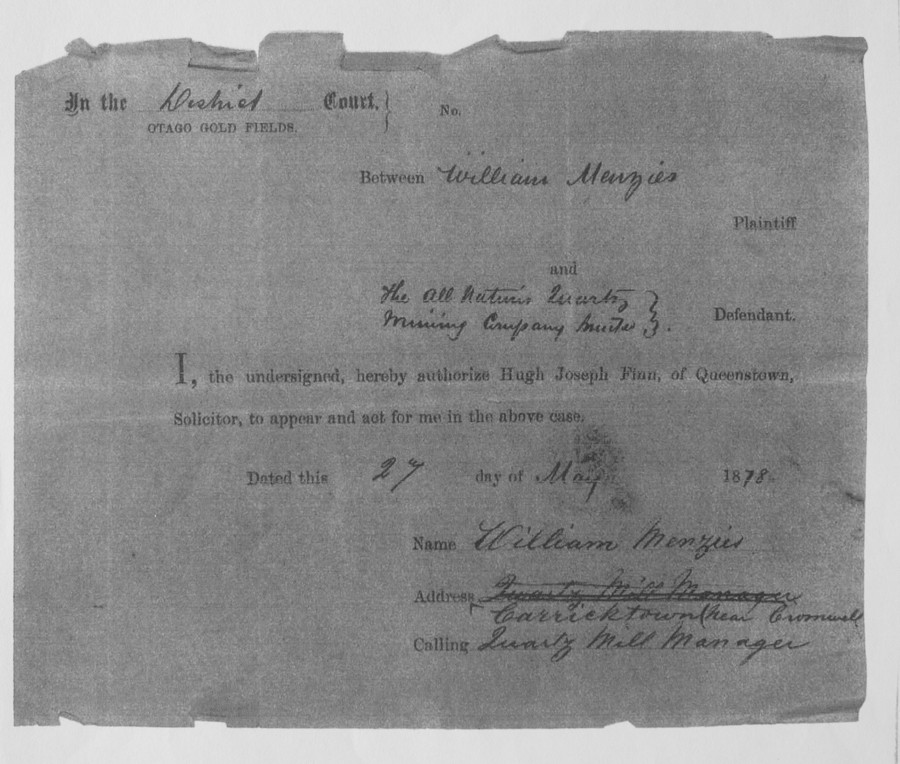 In the District Court,
OTAGO GOLD FIELDS.
No.
Between William Menzies
Plaintiff
and
The All Nations Quartz
Mining Company Limited
Defendant.
I, the undersigned, hereby authorize Hugh Joseph Finn, of Queenstown,
Solicitor, to appear and act for me in the above case.
Dated this 27 day of May 1878.
Name William Menzies
Address Quartz Mill Manager
Carricktown (near Cromwell
Calling Quartz Mill Manager